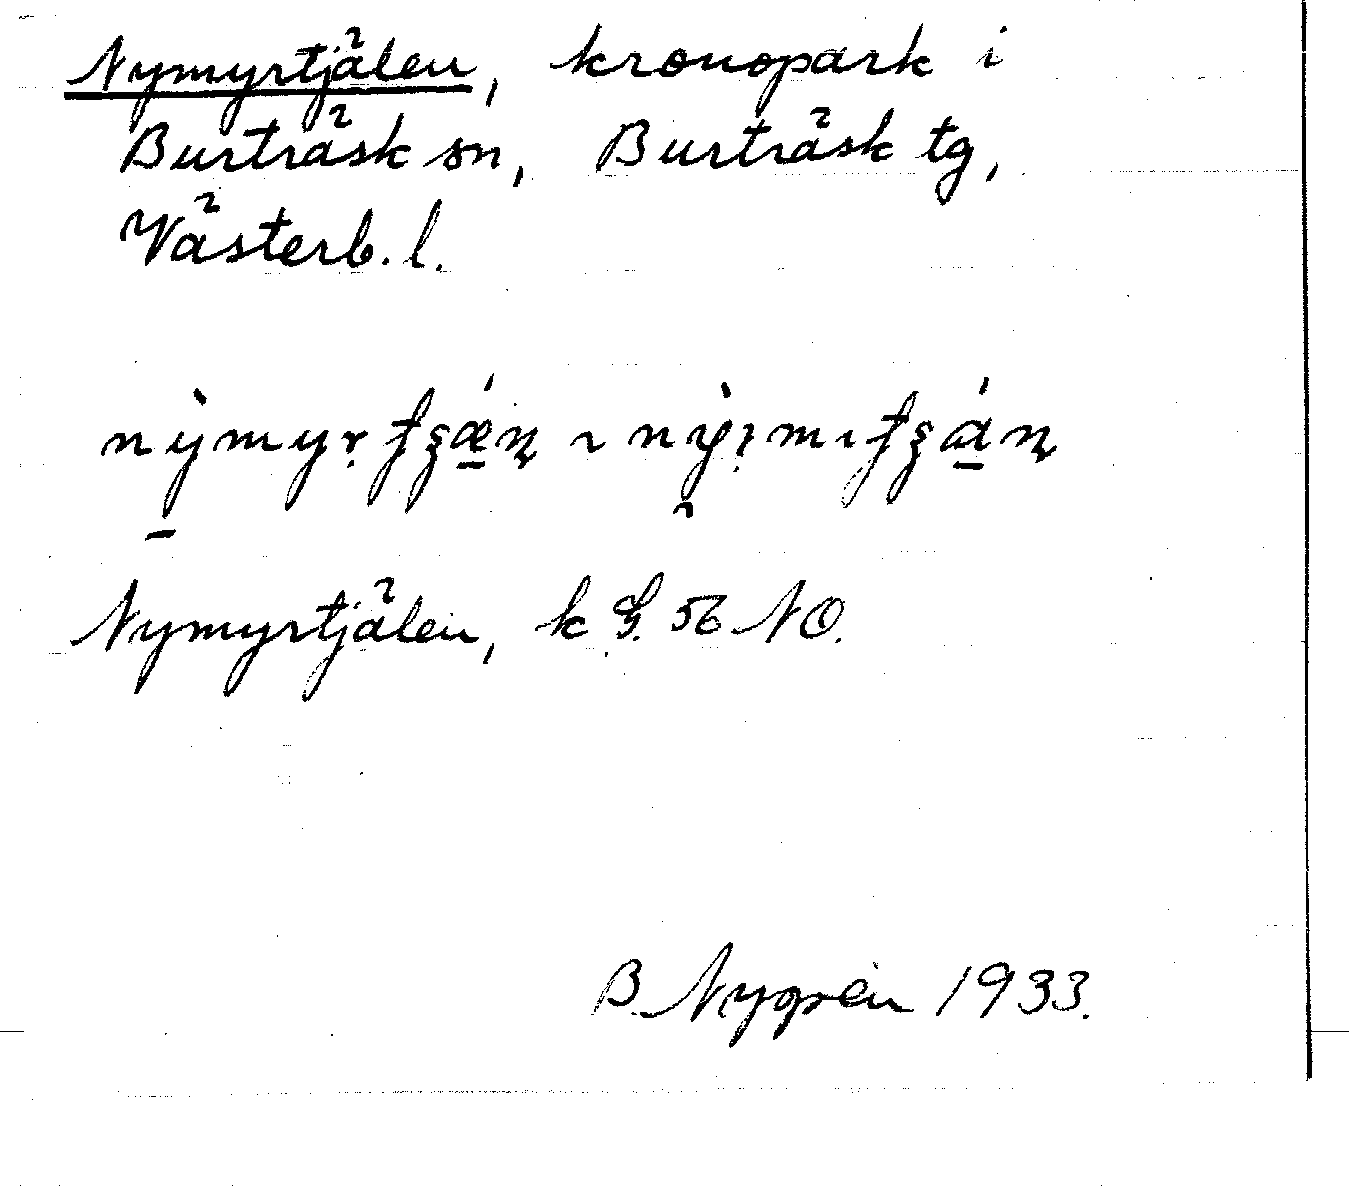 Nymyrtjälen, kronopark i
Burträsk sn, Burträsk tg,
Västerb. l.
Nymyrtjälen, k G. 56 NO.
B. Nygren 1933.